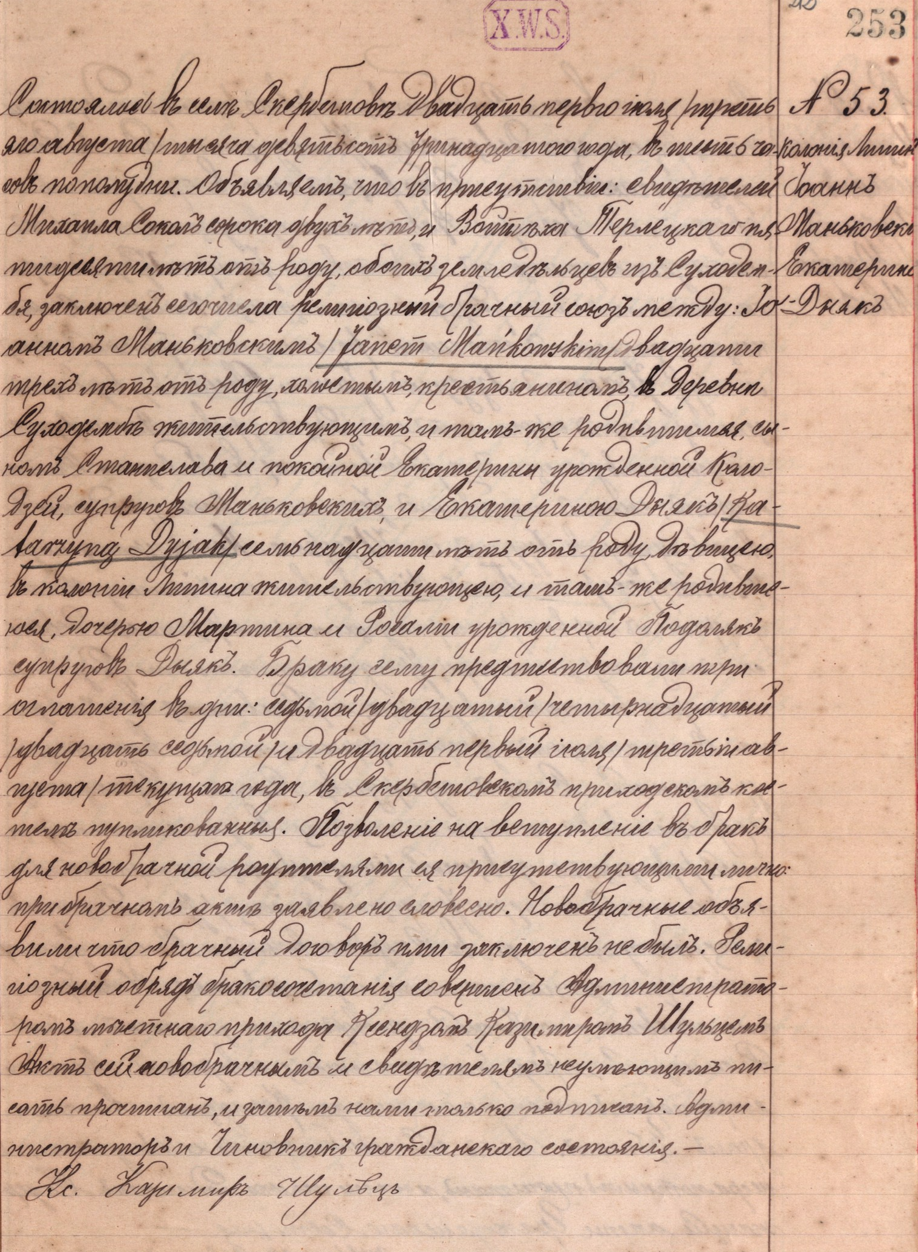 X.W.S.
253
Состоялось въ селѣ Скербешовѣ Двадцать перваго іюля /треть
яго августа/ тысяча девятьсотъ тринадцатого года, въ шесть ча-
совъ пополудни. Объявляемъ, что въ присутствіи: свидѣтелей
Михаила Соколъ сорока двухъ лѣтъ, и Войтѣха Терлецкаго пя
тидесяти лѣтъ отъ роду, обоихъ земледѣльцевъ изъ Суходем-
бя, заключенъ сегочисла религіозный брачный союзъ между: Іо-
анномъ Маньковскимъ /Janem Mańkowskim/ двадцати
трехъ лѣтъ отъ роду, холостымъ, крестьяниномъ, въ Деревни
Суходембѣ жительствующимъ, и тамъ-же родившимся, сы-
номъ Станислава и покойной Екатерины урожденной Коло-
дзей, супруговъ Маньковскихъ, и Екатериною Дыякъ /Ka-
tarzyną Dyjak/ семьнадцати лѣтъ отъ роду, дѣвицею,
въ колоніи Липина жительствующею, и тамъ-же родивше-
юся, дочерью Мартина и Розаліи урожденной Подолякъ
супруговъ Дыякъ. Браку сему предшествовали три
оглашенія въ дни: седьмой /двадцатый/ четырнадцатый
/двадцать седьмой/ и двадцать первый іюля /третьій ав-
густа/ текущаго года, въ Скербешовскомъ приходскомъ кос-
телѣ публикованныя. Позволеніе на вступленіе въ бракъ
для новобрачной родителями ея присутствующими лично
при брачномъ актѣ заявлено словесно. Новобрачные объя-
вили что брачный договоръ ими заключенъ не былъ. Рели-
гіозный обрядъ бракосочетанія совершенъ Администрато-
ромъ мѣстнаго прихода Ксендзомъ Казимиромъ Шульцемъ
Актъ сей новобрачнымъ и свидѣтелямъ неумѣющимъ пи-
сать прочитанъ, и затѣмъ нами только подписанъ. Адми-
нистраторъ и Чиновникъ гражданскаго состоянія.—
Кс. Казимиръ Шульцъ
№ 53.
колонія Липин
Іоаннъ
Маньковскі
Екатерина
Дыякъ